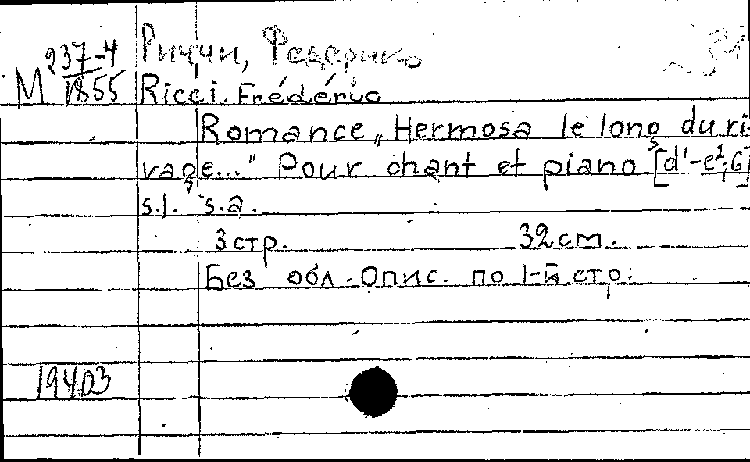 М 237-4/1855 Риччи, Федерико
Ricci. Frédéric
Romance „Hermosa le long du ri-
vage..." Pour chant et piano [d¹-e²; G]
s.l. s.a.
3 стр. 32 см.
Без обл. Опис. по 1-й стр.
19403